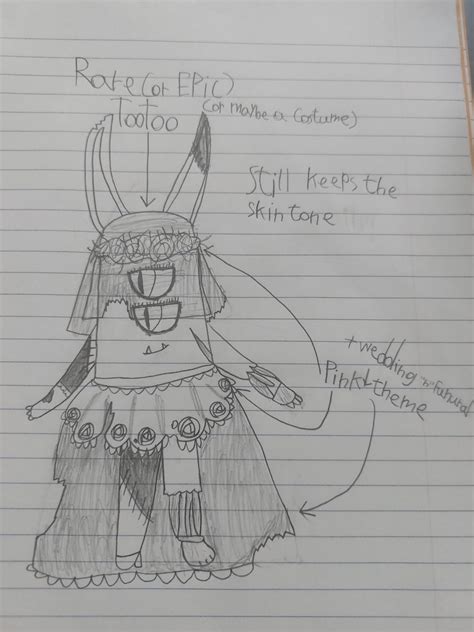 Rare (or EPic)
TooToo
(or maybe a Costume)
Still keeps the
skin tone
+ wedding 'n' Funural
Pink theme